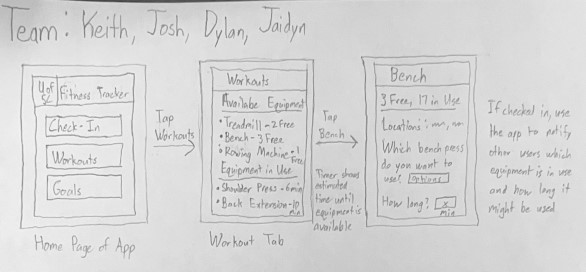 Team: Keith, Josh, Dylan, Jaidyn
U of SC
Fitness Tracker
Check-In
Workouts
Goals
Home Page of App
Tap
Workouts
Workouts
Available Equipment
• Treadmill - 2 Free
• Bench - 3 Free
• Rowing Machine - 1 Free
Equipment in Use
• Shoulder Press - 6 min
• Back Extension - 10 min
Workout Tab
Tap
Bench
Timer shows
estimated
time until
equipment is
available
Bench
3 Free, 17 in Use
Locations:
Which bench press
do you want to
use? options
How long? x
min
If checked in, use
the app to notify
other users which
equipment is in use
and how long it
might be used